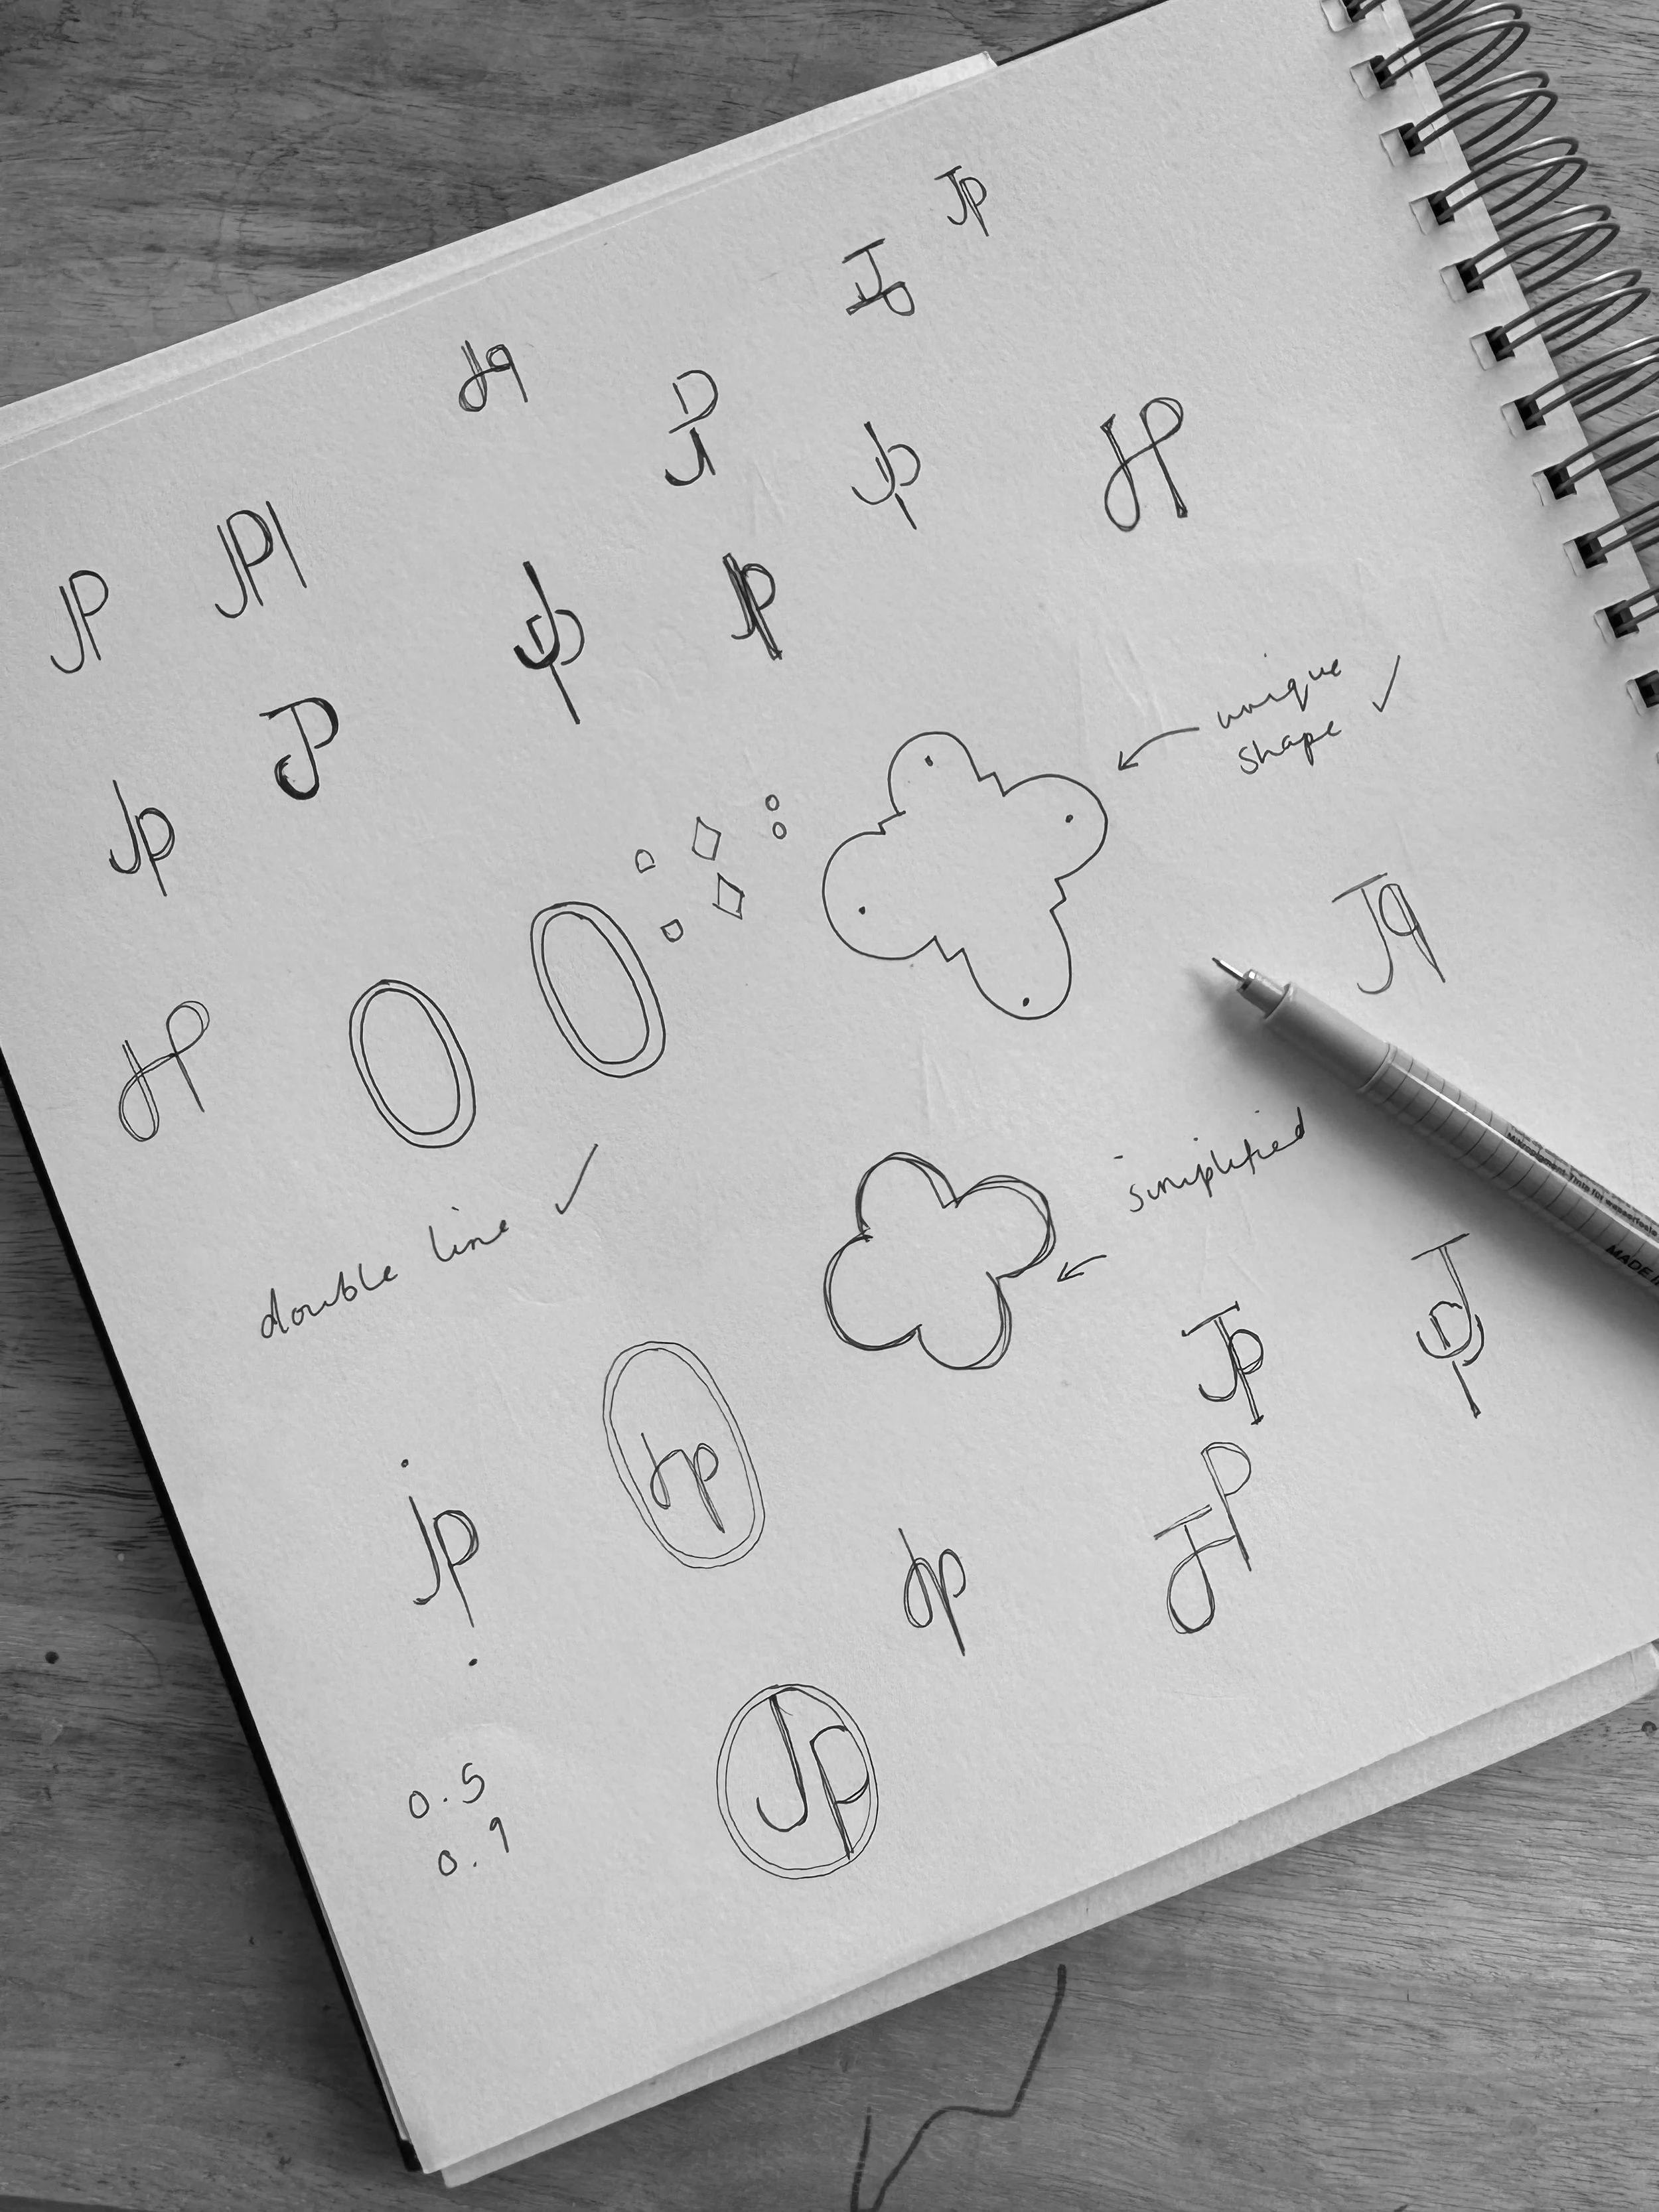 JP
JP
JP
JP
JP
JP
JP
JPI
JP
JP
JP
JP
Jp
unique
shape ✓
JP
JP
double line ✓
simplified
Jp
JP
Jp
jp
Jp
JP
Jp
0.5
0.1
MADE I